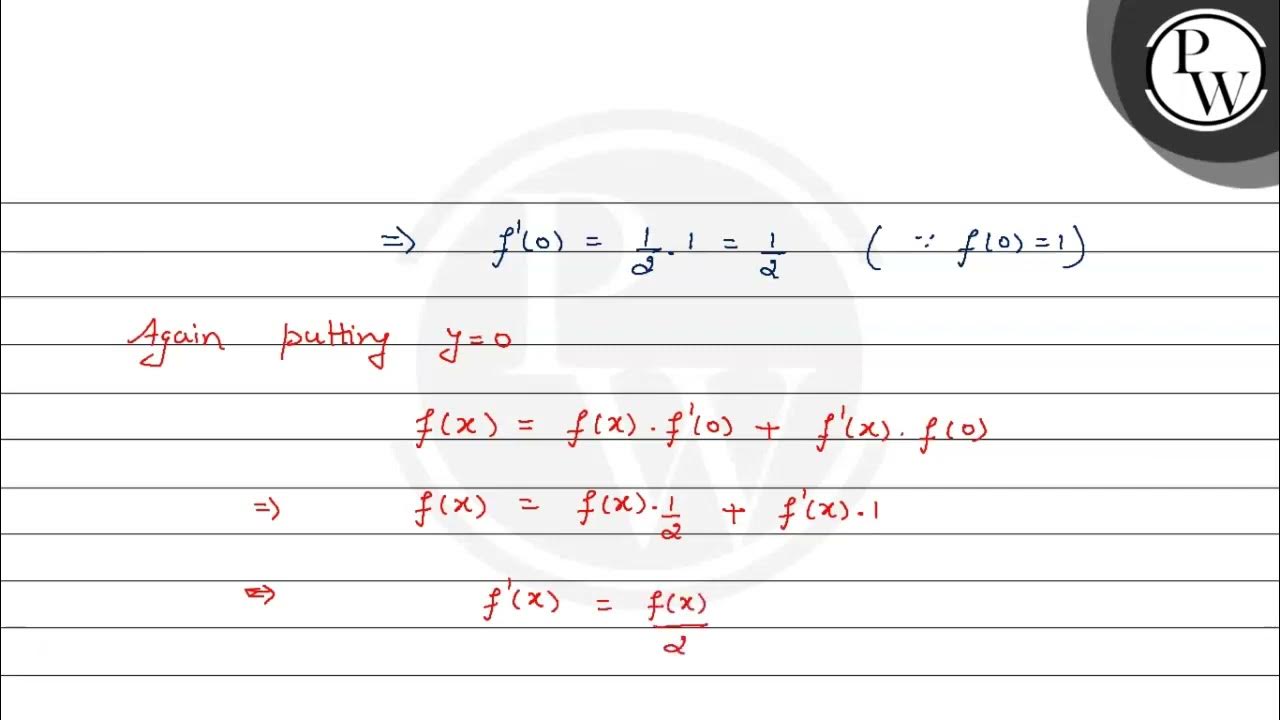 PW
⇒ f'(0) = 1/2 . 1 = 1/2 ( ∵ f(0) = 1 )
Again putting y = 0
f(x) = f(x) . f'(0) + f'(x) . f(0)
⇒ f(x) = f(x) . 1/2 + f'(x) . 1
⇒ f'(x) = f(x)/2